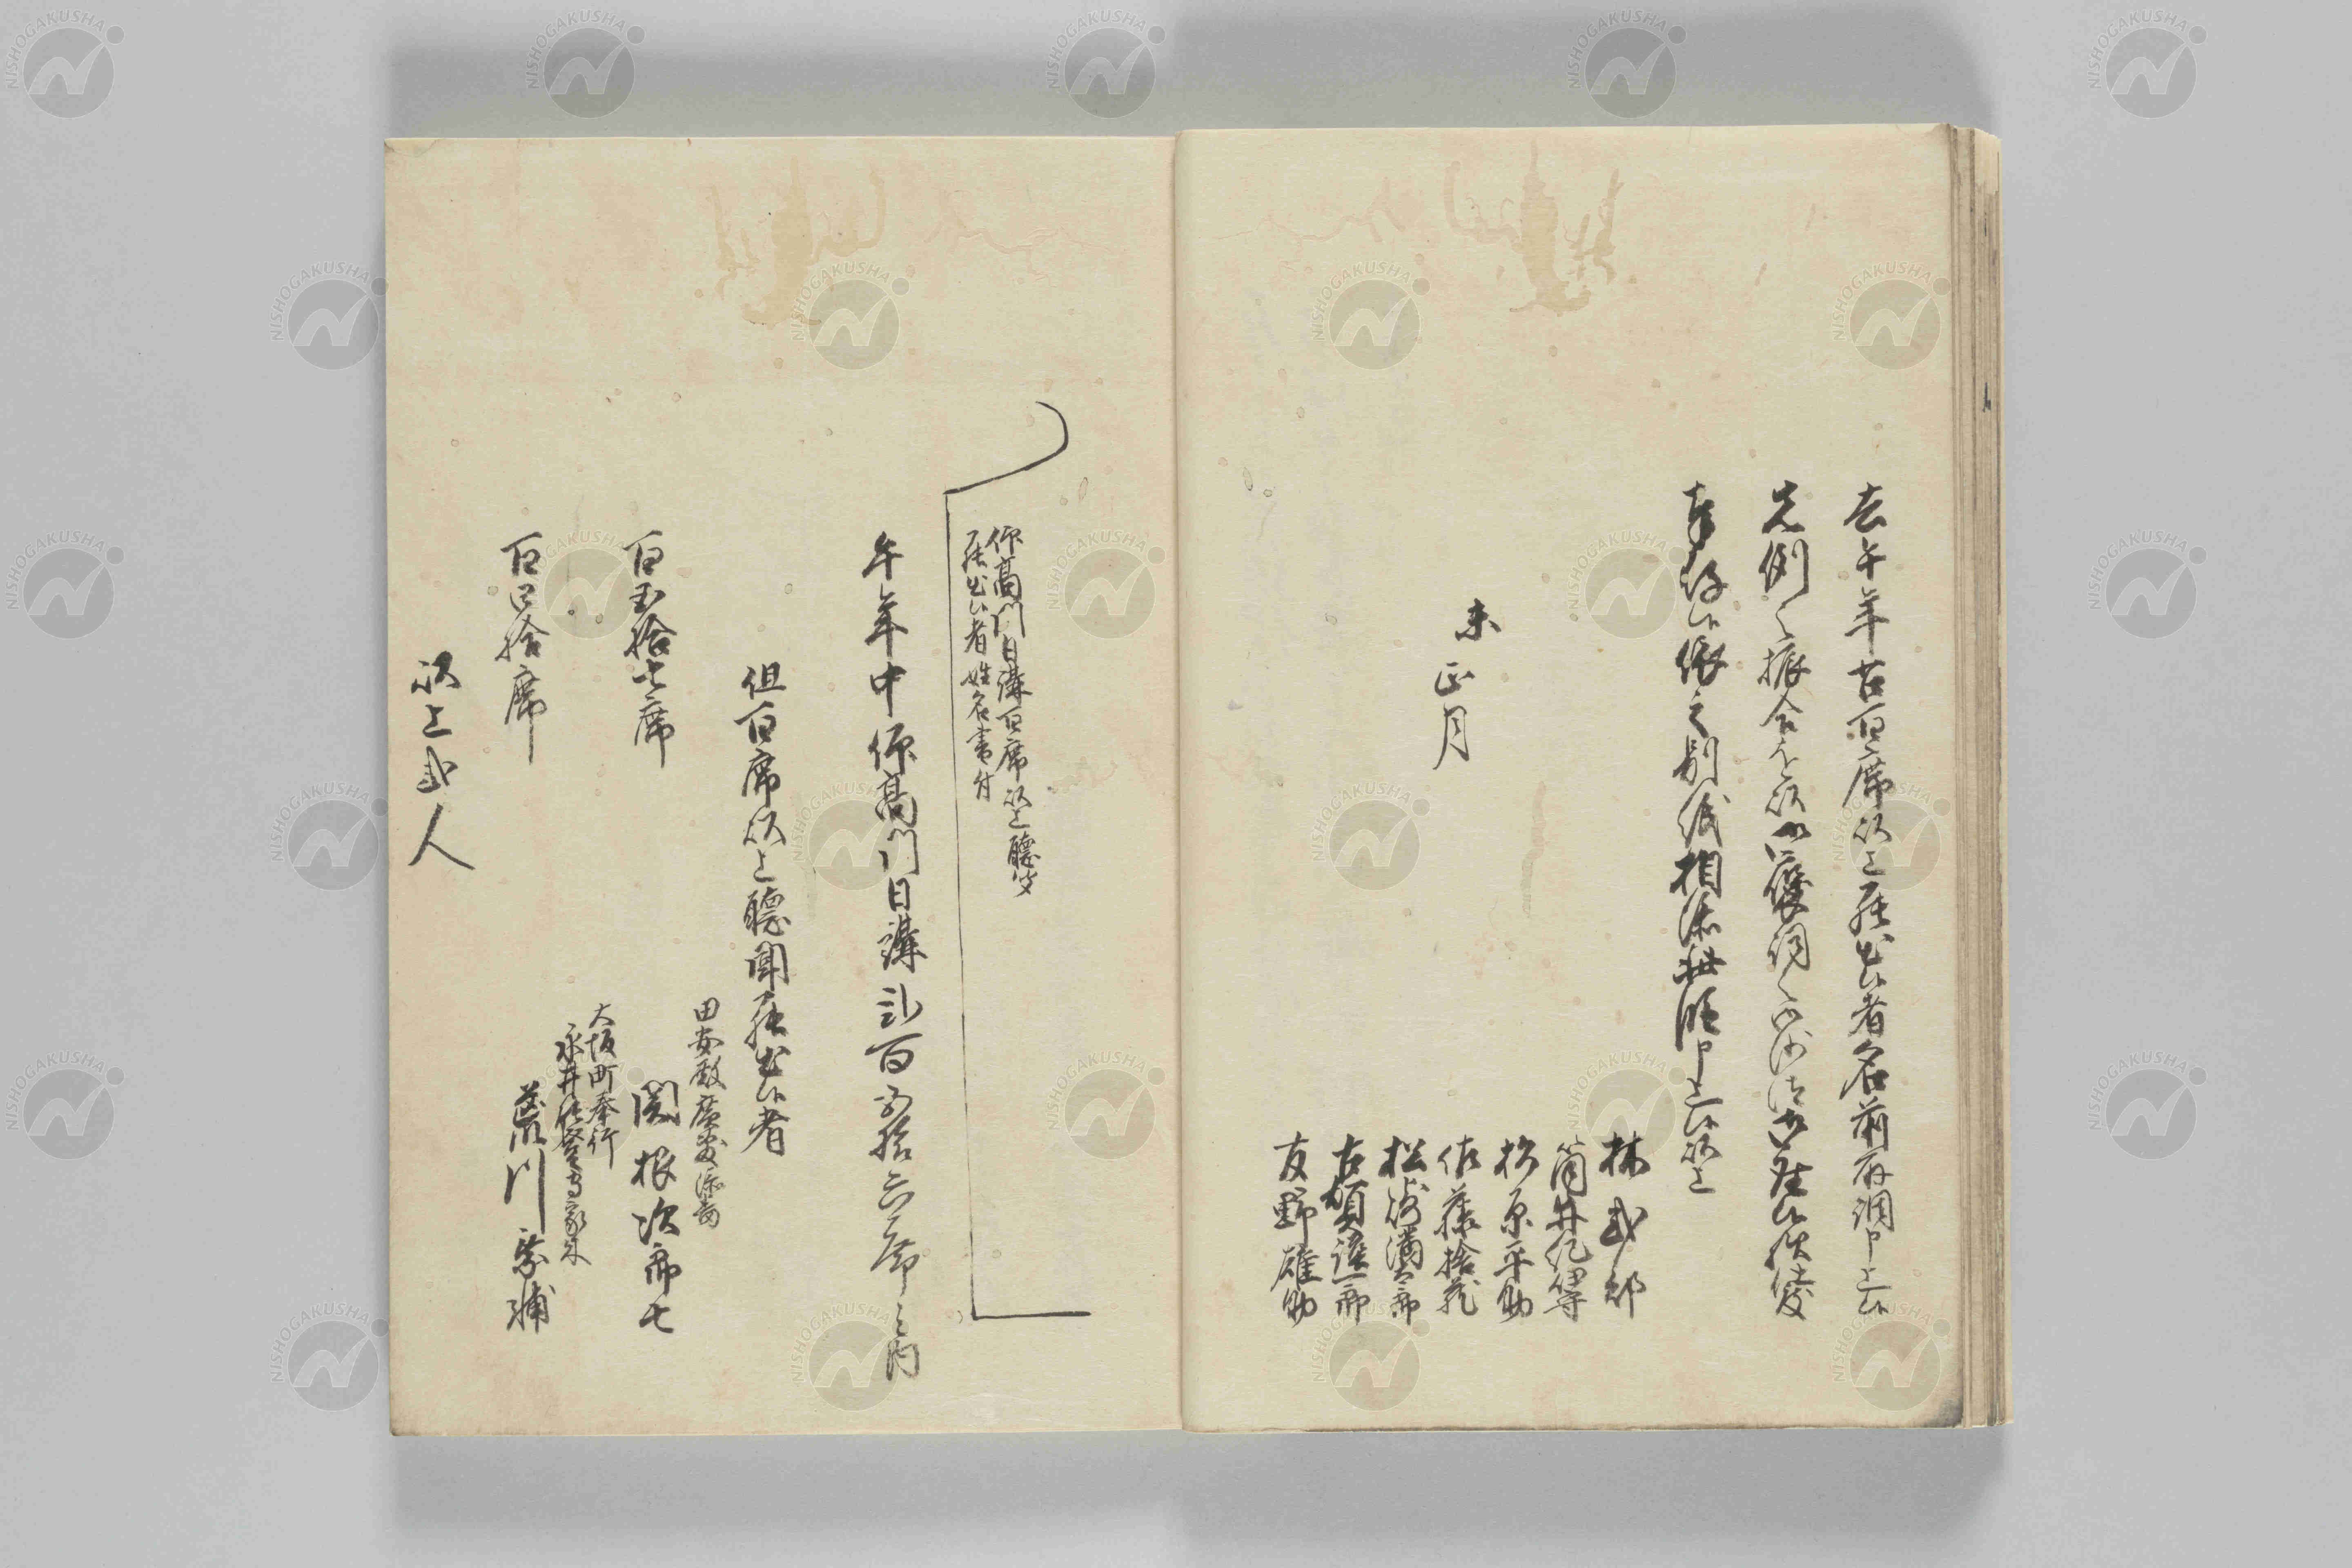 去午年古百席以上罷出候者名前取調申上候
先例之振合を以御褒詞之御沙汰御座候様仕度
奉存候依之別紙相添此段申上候以上
未正月
林式部
筒井紀伊守
杉原平助
佐藤捨蔵
松崎満太郎
古賀謹一郎
友野雄助
仰高門日講百席以上聴聞
罷出候者姓名書付
午年中仰高門日講弐百五拾六席之内
但百席以上聴聞罷出候者
百五拾七席
田安殿
関根次郎七
百四拾席
大坂町奉行
永井能登守家来
荒川
以上弐人
NISHOGAKUSHA